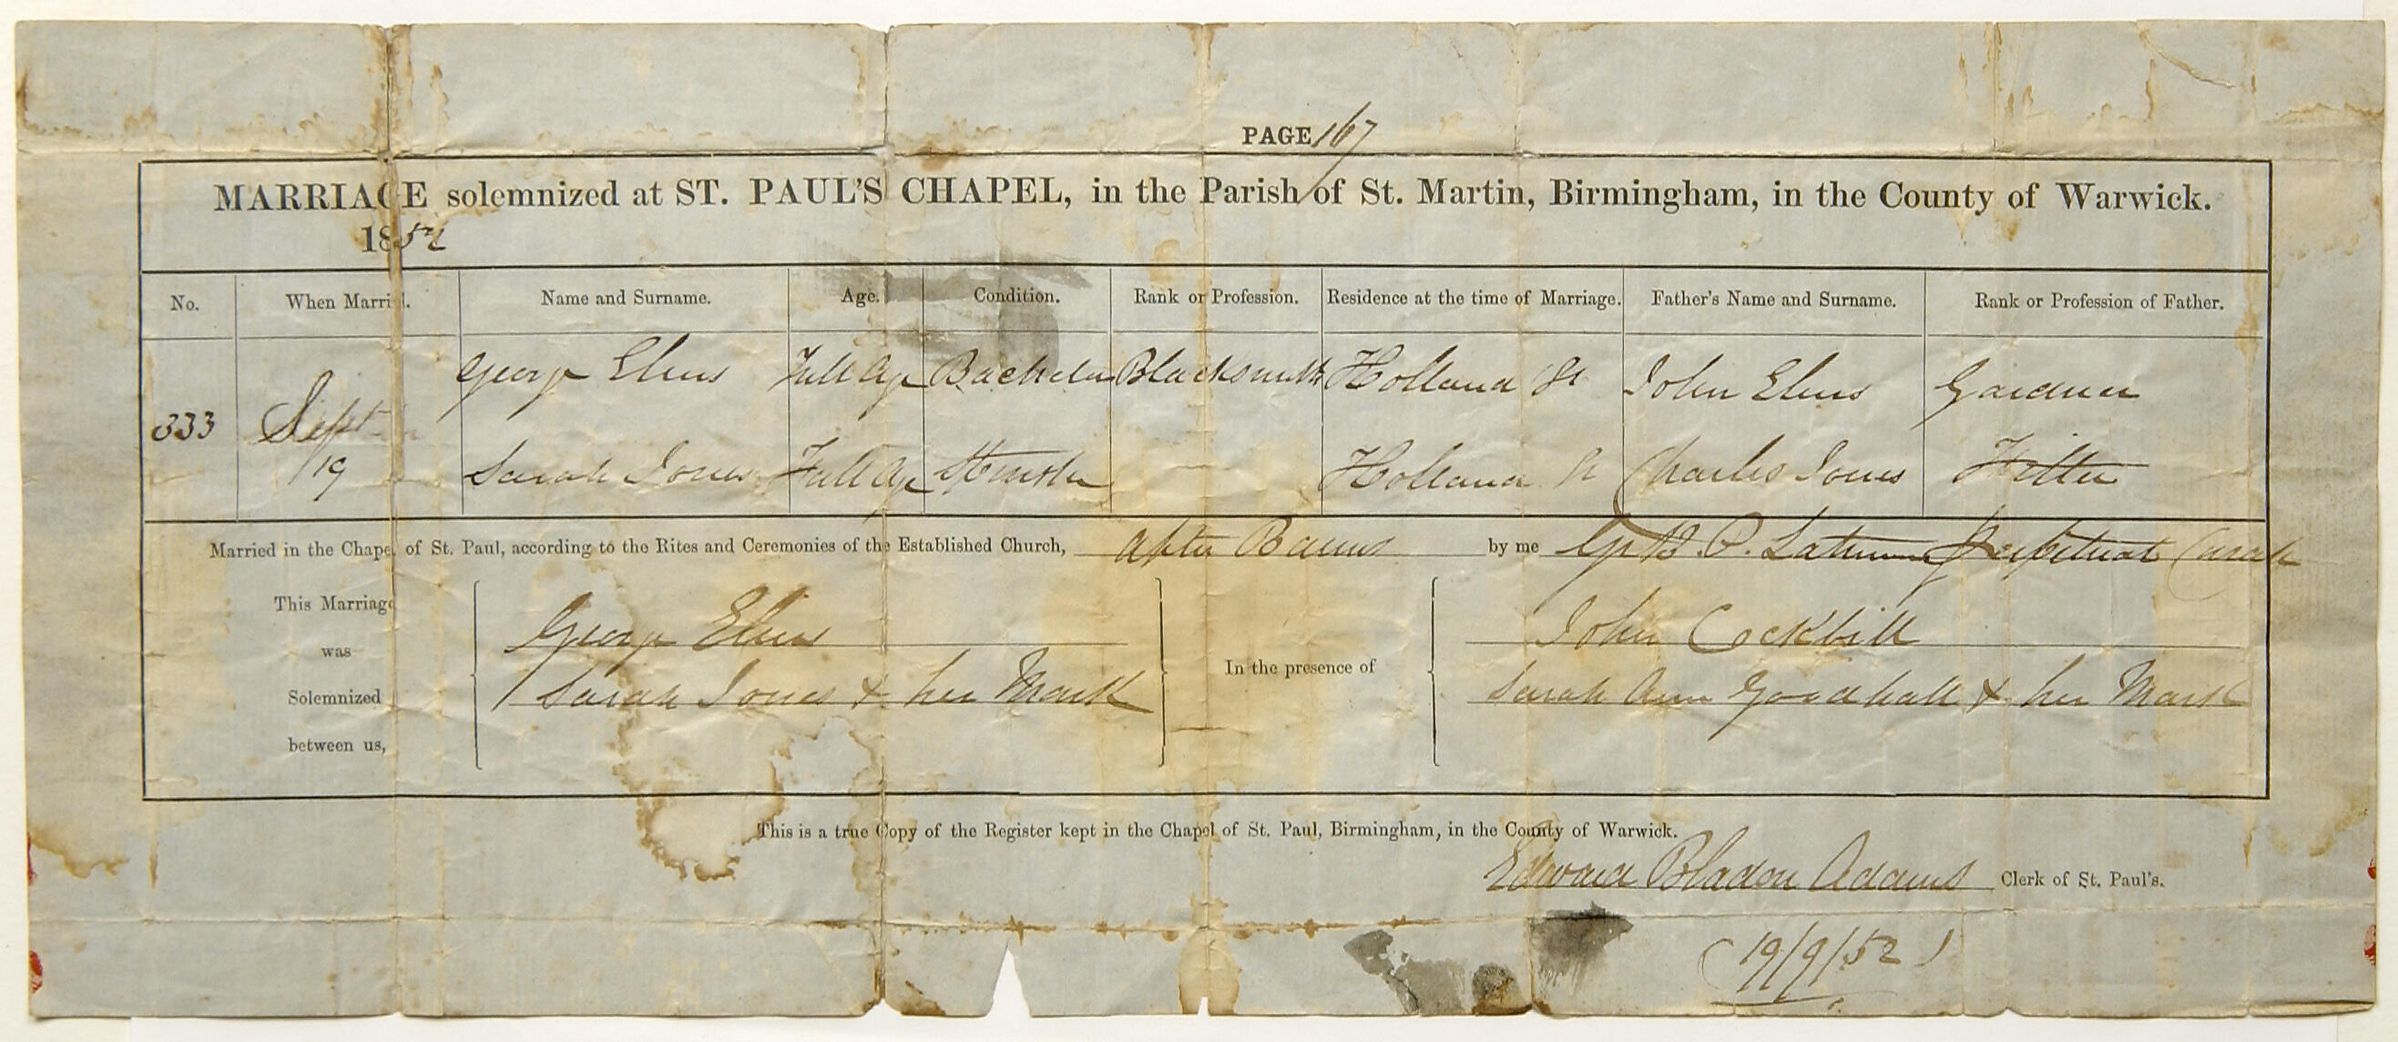 PAGE 167
MARRIAGE solemnized at ST. PAUL'S CHAPEL, in the Parish of St. Martin, Birmingham, in the County of Warwick.
1852
No. When Married. Name and Surname. Age. Condition. Rank or Profession. Residence at the time of Marriage. Father's Name and Surname. Rank or Profession of Father.
George Elms Full Age Bachelor Blacksmith Holland St John Elms Gardner
333 Sept 19
Sarah Jones Full Age Spinster Holland St Charles Jones
Married in the Chapel of St. Paul, according to the Rites and Ceremonies of the Established Church, after Banns by me G. B. P. Latimer Perpetual Curate
This Marriage was Solemnized between us,
George Elms
Sarah Jones + her Mark
In the presence of
John Cockbill
Sarah Ann Goodhall + her Mark
This is a true Copy of the Register kept in the Chapel of St. Paul, Birmingham, in the County of Warwick.
Edward Bladon Adams Clerk of St. Paul's.
(19/9/52)